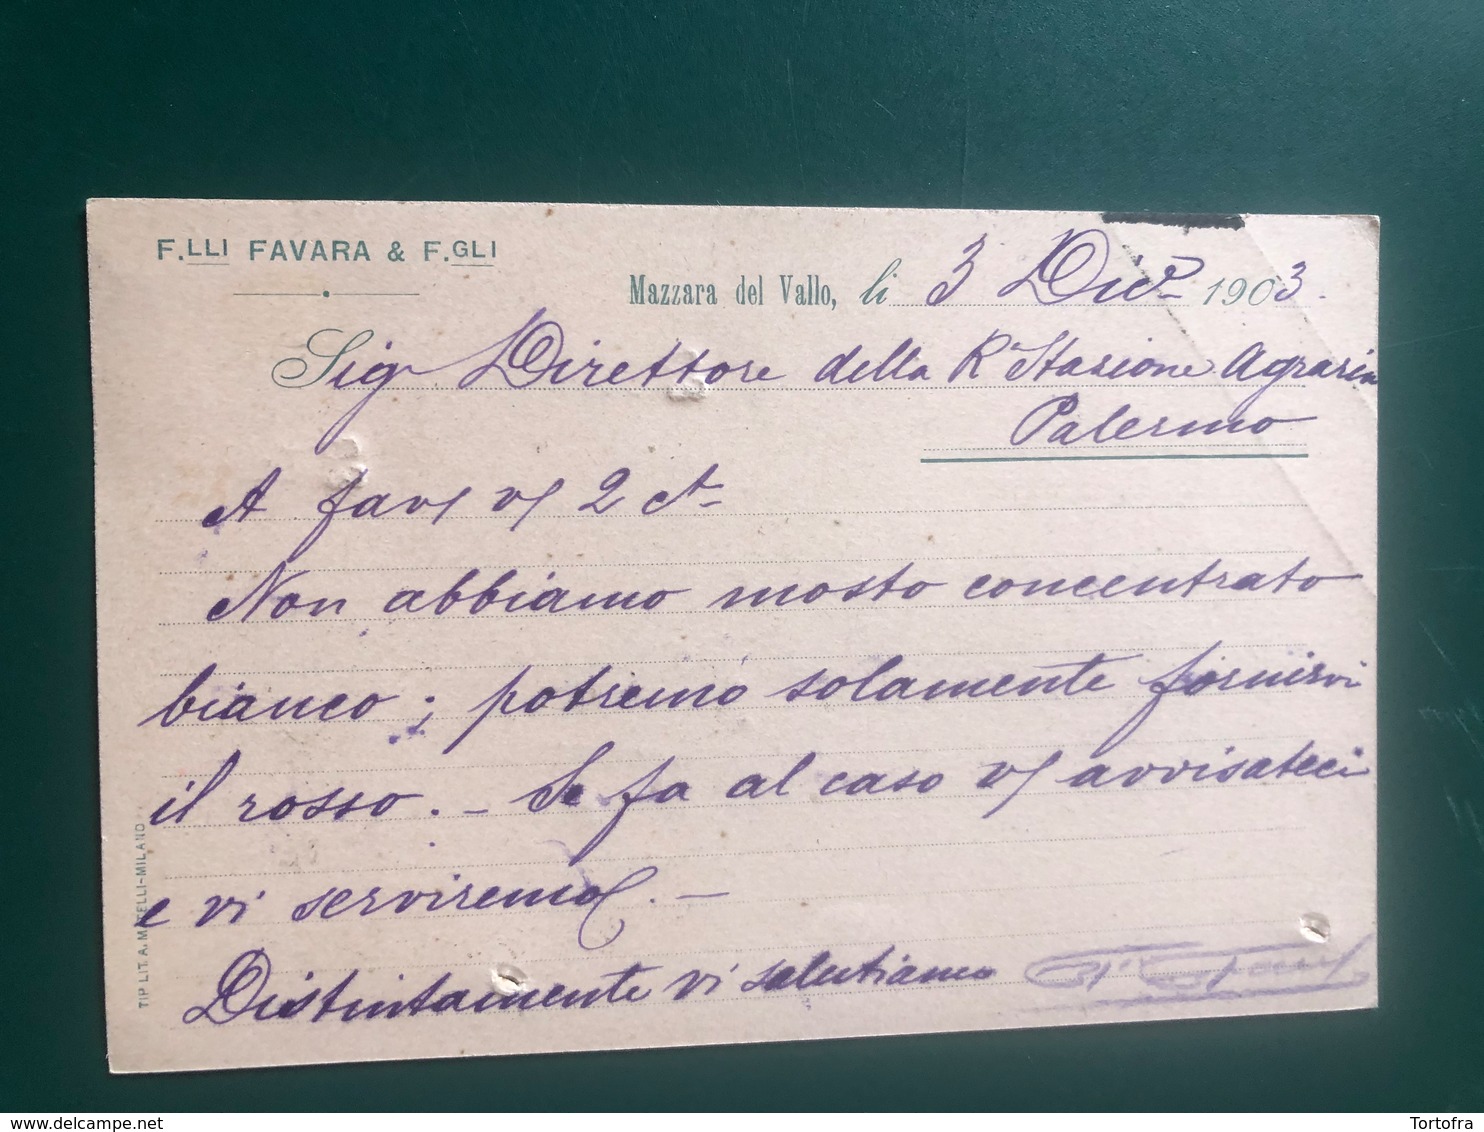 F.LLI FAVARA & F.GLI
Mazzara del Vallo, li 3 Dic. 1903.
Sig Direttore della Ra Stazione Agraria
Palermo
A fav/ v/ 2 ct
Non abbiamo mosto concentrato
bianco; potremo solamente fornirvi
il rosso. - Se fa al caso v/ avvisateci
e vi serviremo. -
Distintamente vi salutiamo
TIP. LIT. A. MATELLI-MILANO
Tortofra